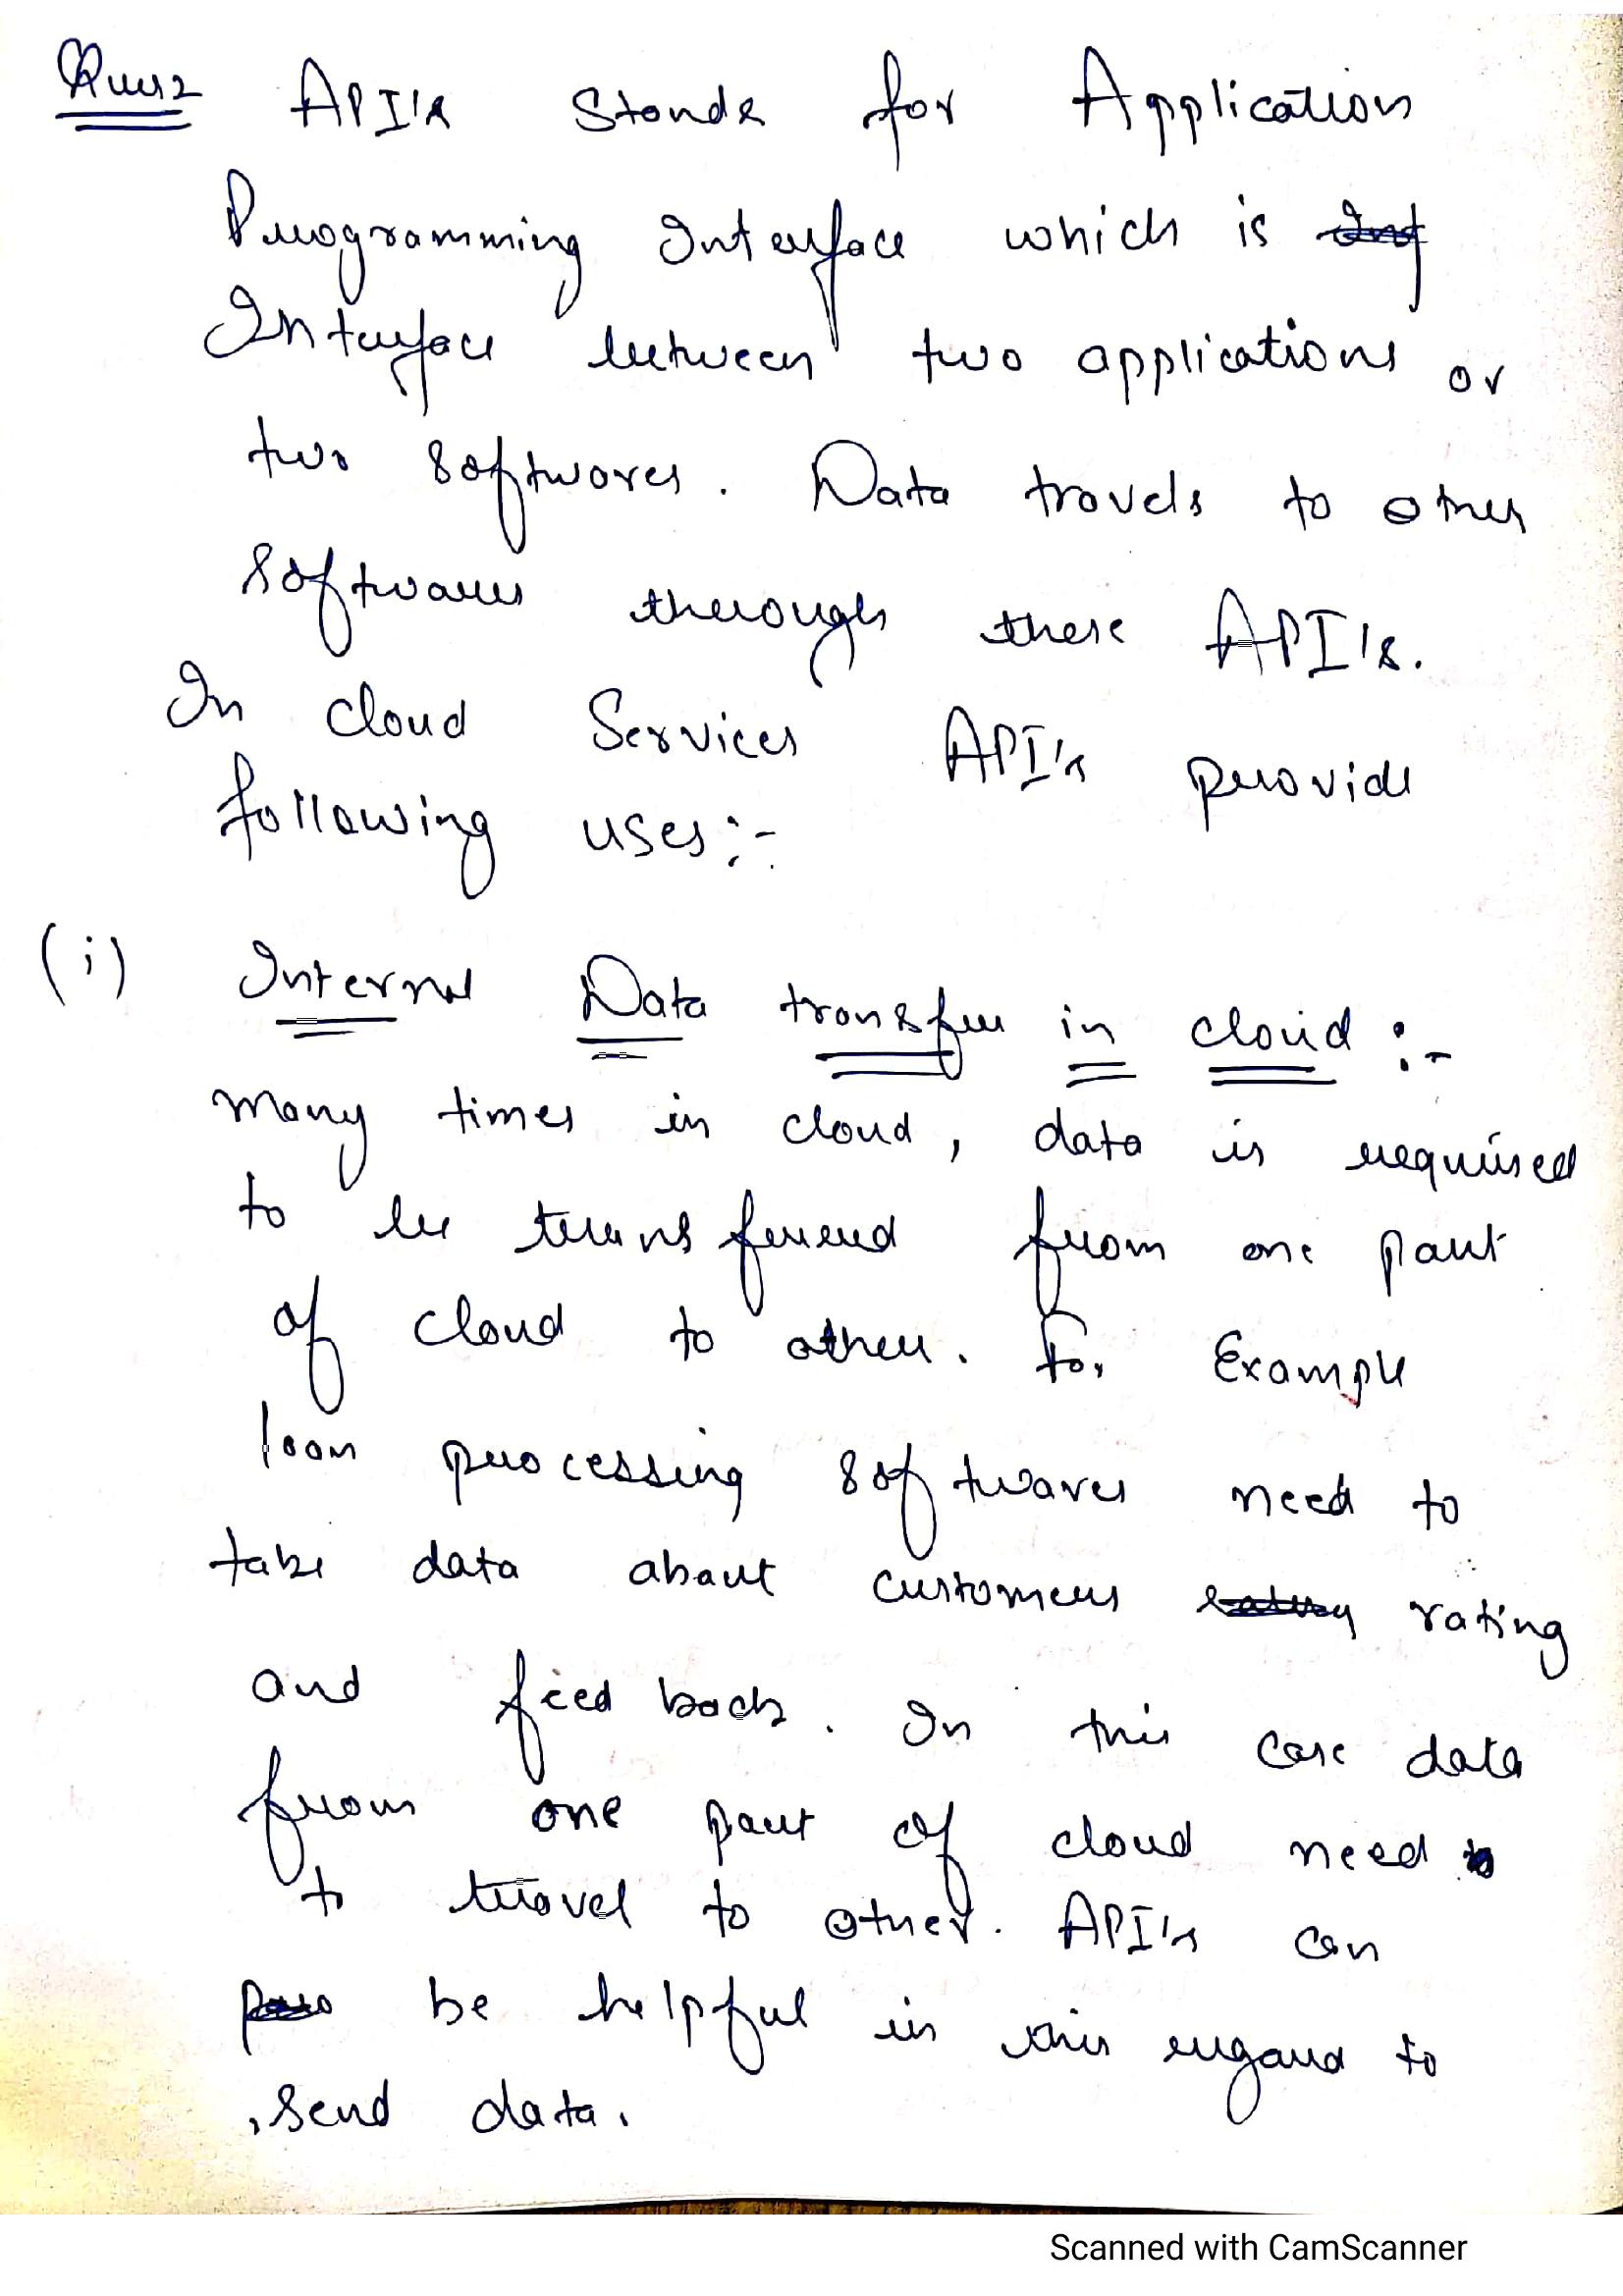 Ques2 API's Stands for Application
Programming Interface which is
Interface between two applications or
two softwares. Data travels to other
softwares through these API's.
In cloud Services API's provide
following uses:-
(i) Internal Data transfer in cloud :-
Many times in cloud, data is required
to be transferred from one part
of cloud to other. For Example
loan processing softwares need to
take data about customers rating
and feed back. In this case data
from one part of cloud need
to travel to other. API's can
be helpful in this regard to
send data.
Scanned with CamScanner